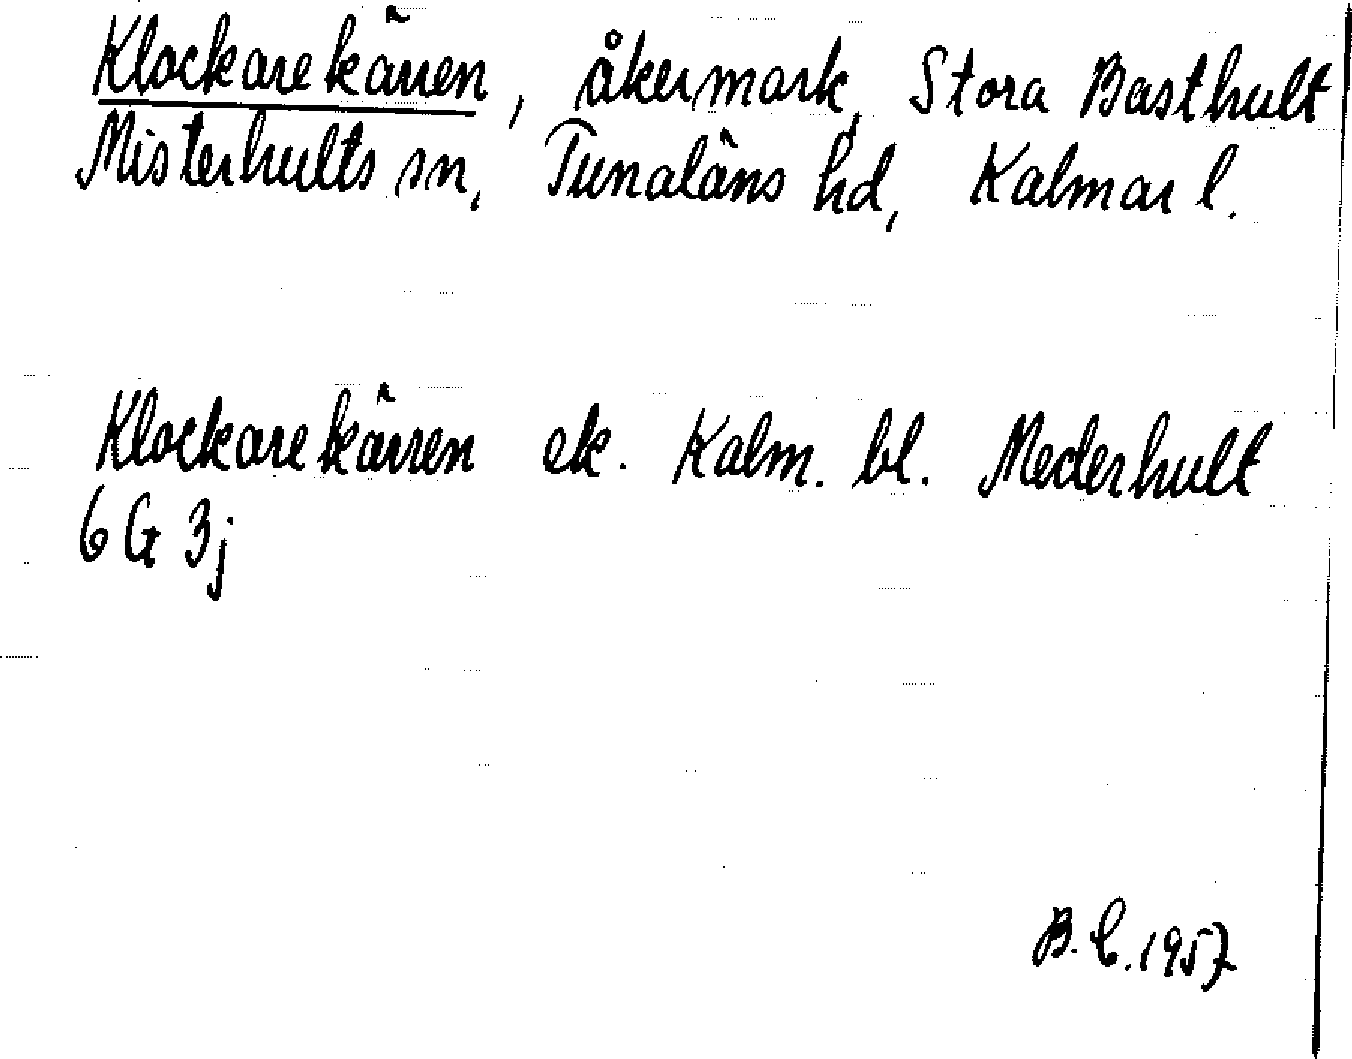 Klockarekärren, åkermark, Stora Basthult
Misterhults sn, Tunaläns hd, Kalmar l.
Klockarekärren ek. Kalm. bl. Mederhult
6 G 3j
B.C. 1957